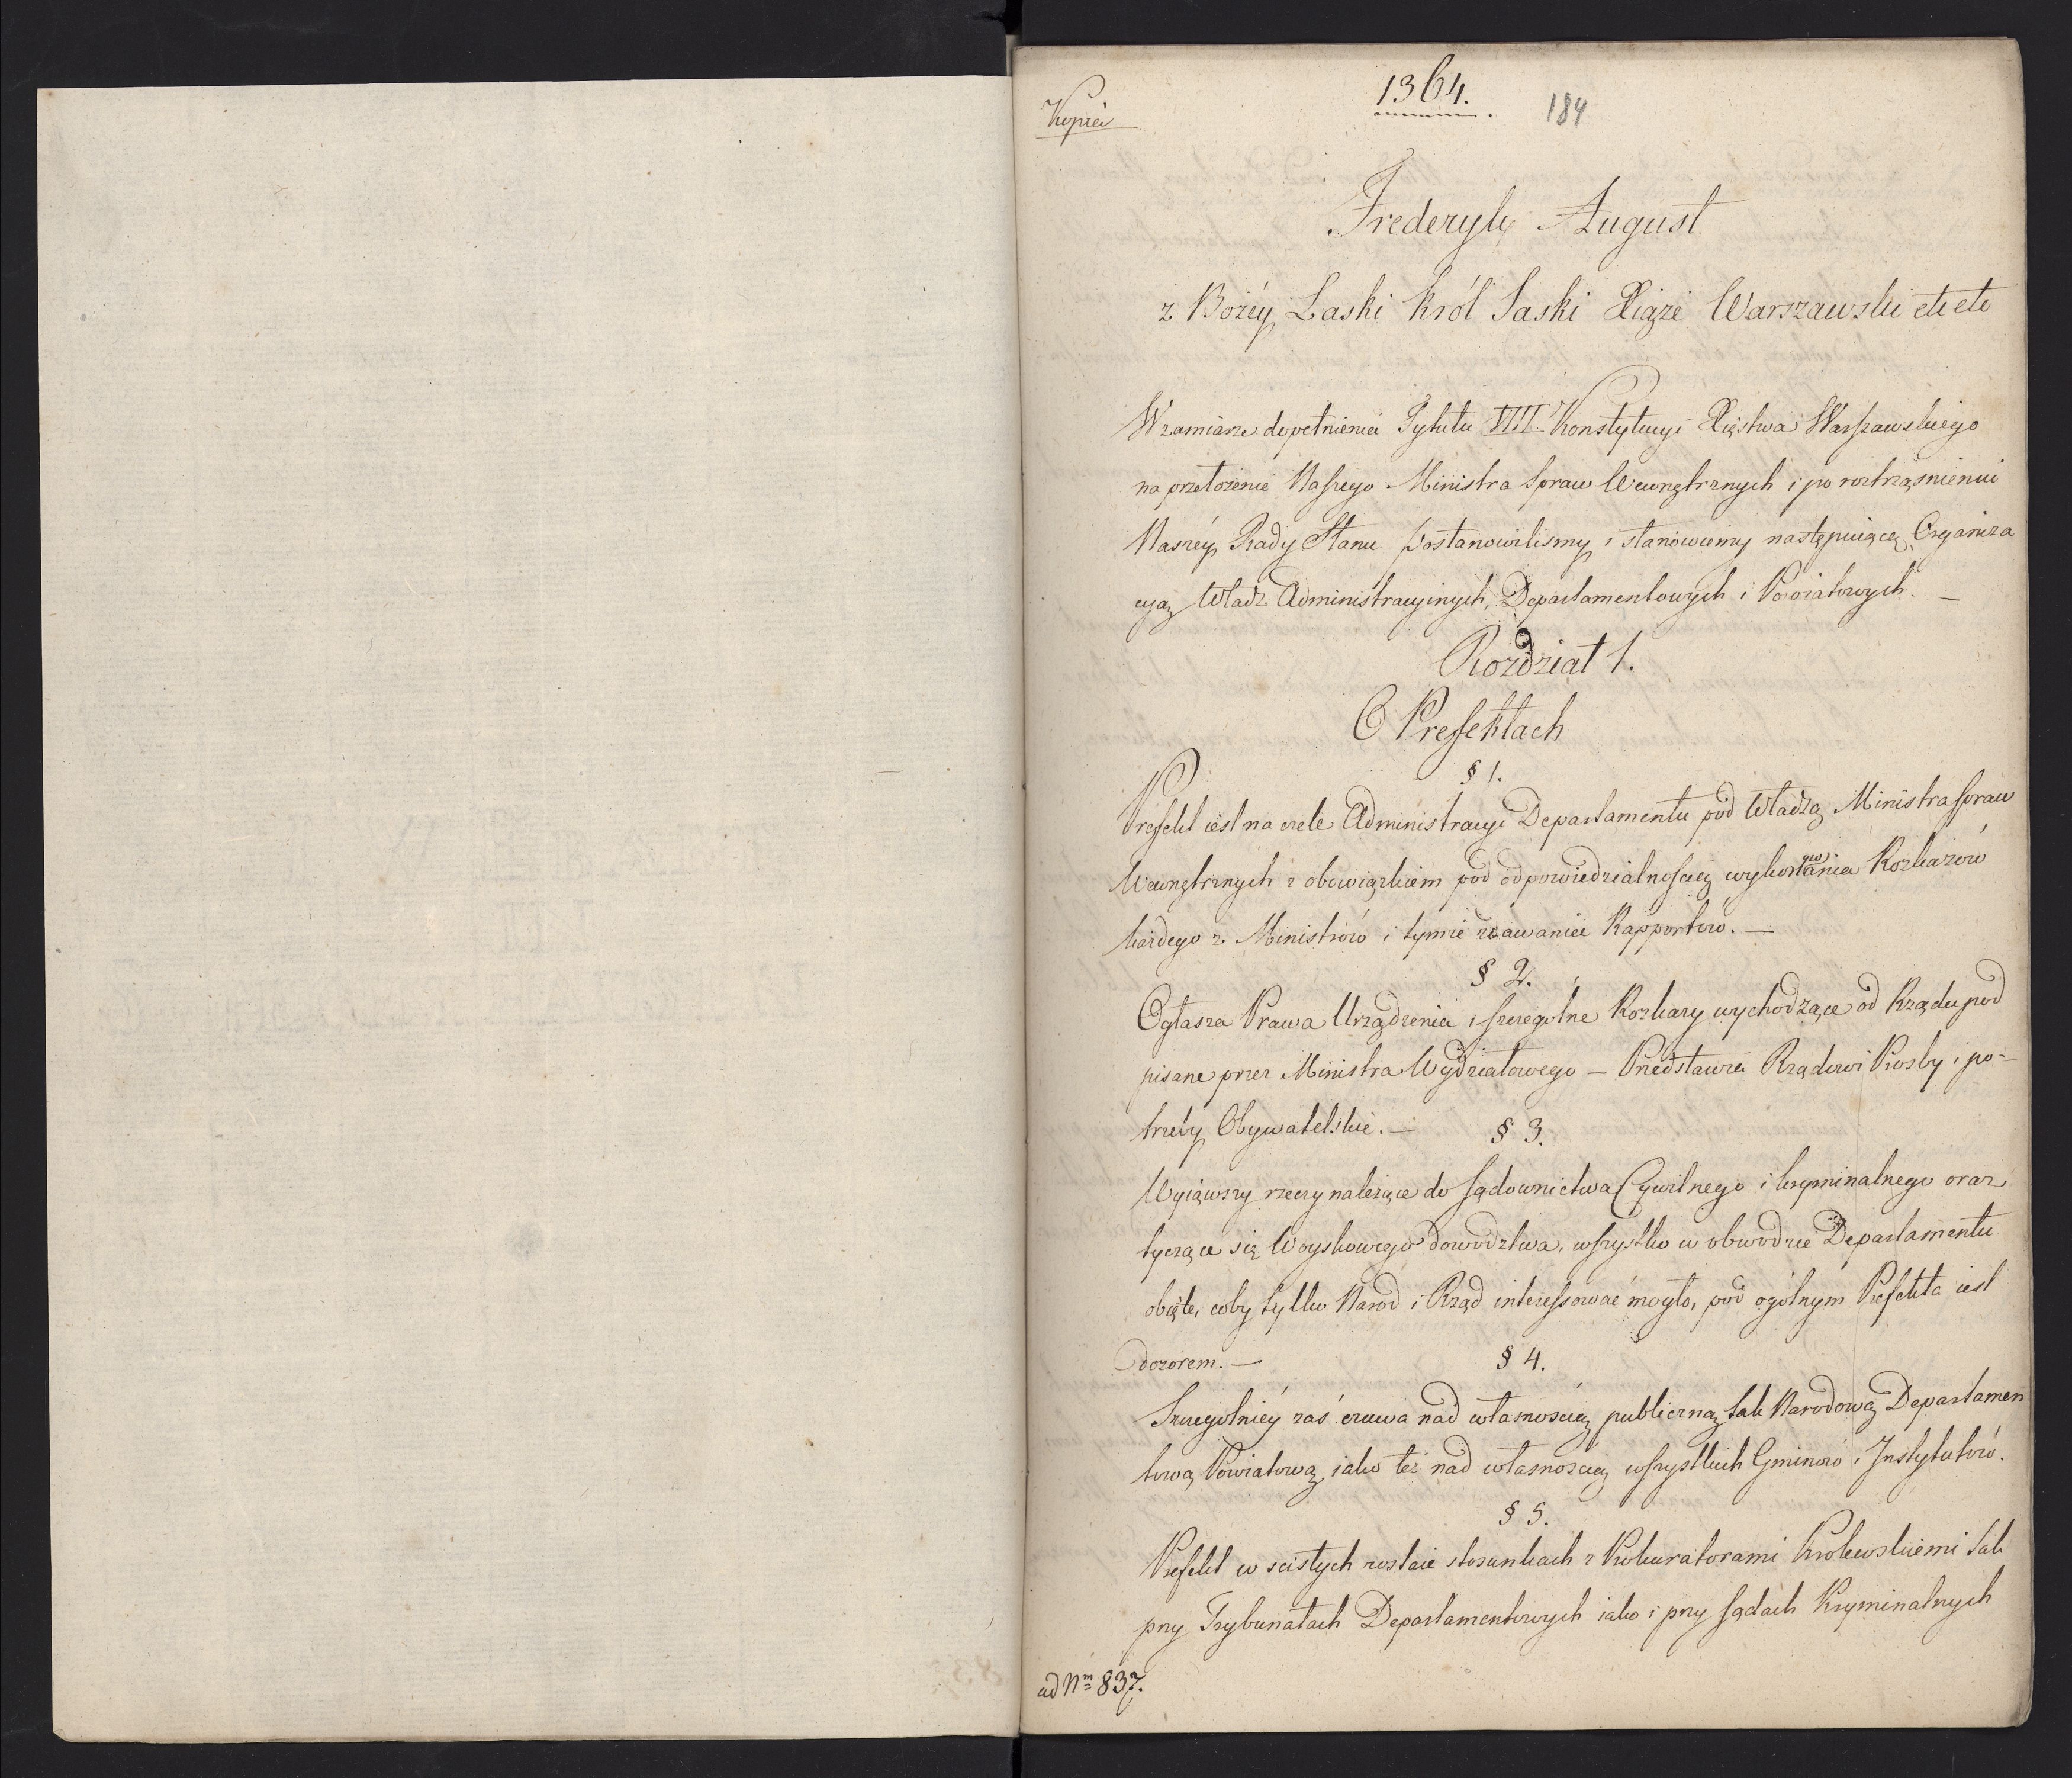 Kopia
1364.
184
Frederyk August
z Bożéy Łaski Król Saski Xiąże Warszawski etc etc
W zamiarze dopełnienia Tytułu VIII. Konstytucyi Xięstwa Warszawskiego
na przełożenie Naszego Ministra Spraw Wewnętrznych i po roztrząśnieniu
Naszéy Rady Stanu postanowiliśmy i stanowiemy następuiącą Organiza
cyą Władz Administracyinych, Departamentowych i Powiatowych. —
Rozdział 1.
O Prefektach
§ 1.
Prefekt iest na czele Administracyi Departamentu pod Władzą Ministra Spraw
Wewnętrznych z obowiązkiem pod odpowiedzialnością wykonania Rozkazów
każdego z Ministrów i tymże zdawanie Rapportów. —
§ 2.
Ogłasza Prawa Urządzenia i szczegolne Rozkazy wychodzące od Rządu pod
pisane przez Ministra Wydziałowego — Przedstawia Rządowi Prosby i po-
trzeby Obywatelskie. — § 3.
Wyiąwszy rzeczy należące do Sądownictwa Cywilnego i kryminalnego oraz
tyczące się Woyskowego dowodztwa, wszystko w obwodzie Departamentu
obięte, coby tylko Narod i Rząd interessować mogło, pod ogólnym Prefekta iest
dozorem. — § 4.
Szczegolniéy zaś czuwa nad własnością publiczną tak Narodową Departamen
tową Powiatową, iako też nad własnością wszystkich Gminów i Instytutów.
§ 5.
Prefekt w scisłych zostaie stosunkach z Prokuratorami Krolewskiemi tak
przy Trybunałach Departamentowych iako i przy Sądach Kryminalnych
ad Nm 837.